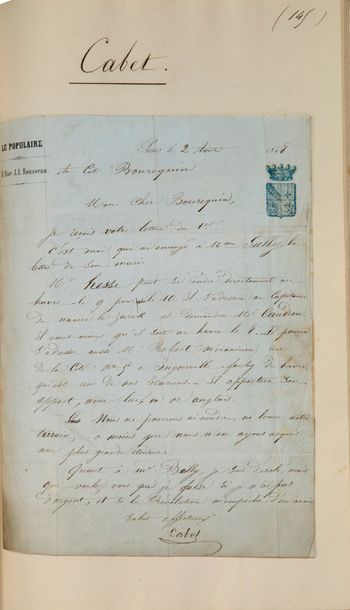 (145)
Cabet.
LE POPULAIRE
Rue J.J. Rousseau.
Paris le 2 Août 1848
Au Cit. Bourequin
Mon Cher Bourequin,
je reçois votre lettre du 1er.
C'est moi qui ai envoyé à Mme Gully la
lettre de son mari.
Mr. Hesse peut se rendre directement au
havre le 9 pour le 10. Il s'adressera au Capitaine
du navire le et demandra Mr. Caudron.
Il vous mais qu'il soit au havre le 8. Il pourra
s'adresser aussi Mr. Robert mécanicien, rue
de la Cité No. 5 à Ingouville, faubg du havre,
qui est un de nos Icariens. Il apportera son
apport, avec lui, en or anglais.
Nous ne pouvons ni vendre, ni louer notre
terrain, à moins que nous n'en ayons acquis
une plus grande étendue.
Quant à Mr. Bally, je suis désolé, mais
que voulez vous que je fasse si je n'ai pas
d'argent, et si la Révolution m'empêche d'en avoir
Salut affectueux
Cabet